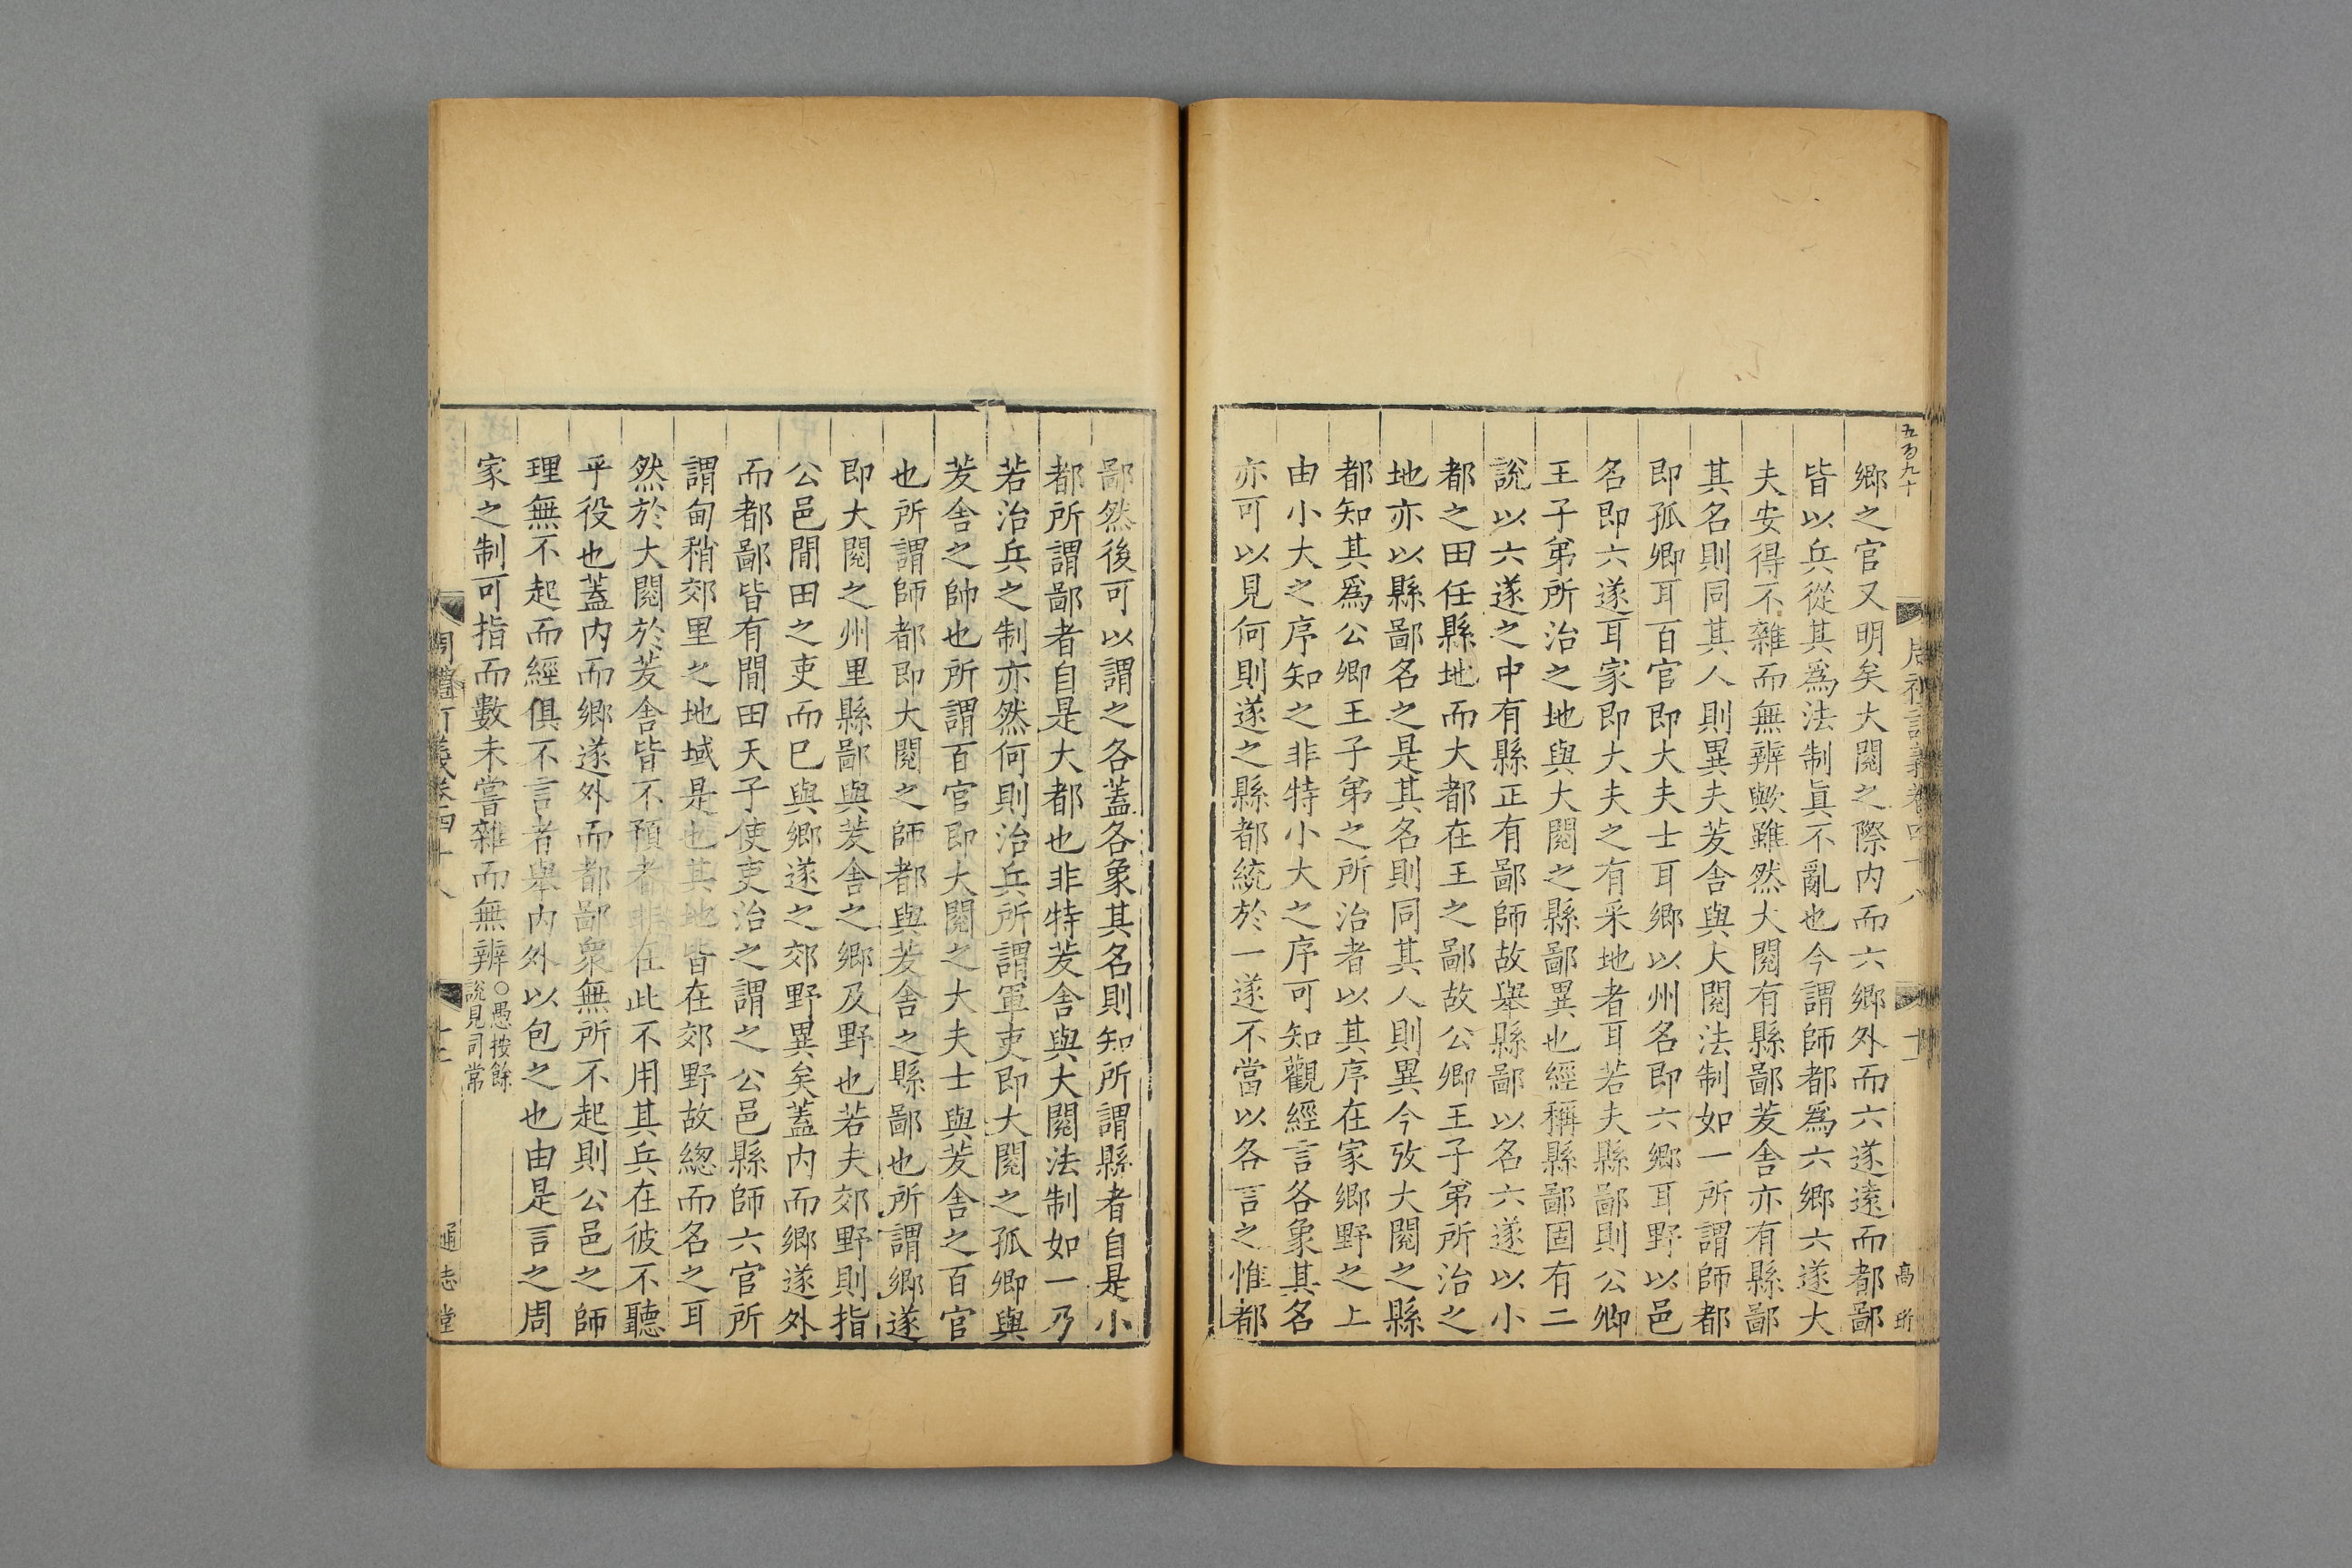 五百九十
鄉之官又明矣大閱之際内而六鄉外而六遂遠而都鄙
皆以兵從其爲法制眞不亂也今謂師都爲六鄉六遂大
夫安得不雜而無辨歟雖然大閱有縣鄙茇舍亦有縣鄙
其名則同其人則異夫茇舍與大閱法制如一所謂師都
即孤卿耳百官即大夫士耳鄉以州名即六鄉耳野以邑
名即六遂耳家即大夫之有采地者耳若夫縣鄙則公卿
王子弟所治之地與大閱之縣鄙異也經稱縣鄙固有二
說以六遂之中有縣正有鄙師故舉縣鄙以名六遂以小
都之田任縣地而大都在王之鄙故公卿王子弟所治之
地亦以縣鄙名之是其名則同其人則異今攷大閱之縣
都知其爲公卿王子弟之所治者以其序在家鄉野之上
由小大之序知之非特小大之序可知觀經言各象其名
亦可以見何則遂之縣都統於一遂不當以各言之惟都
周禮訂義卷四十八
十二
高珩
鄙然後可以謂之各蓋各象其名則知所謂縣者自是小
都所謂鄙者自是大都也非特茇舍與大閱法制如一乃
若治兵之制亦然何則治兵所謂軍吏即大閱之孤卿與
茇舍之帥也所謂百官即大閱之大夫士與茇舍之百官
也所謂師都即大閱之師都與茇舍之縣鄙也所謂鄉遂
即大閱之州里縣鄙與茇舍之鄉及野也若夫郊野則指
公邑閒田之吏而已與鄉遂之郊野異矣蓋内而鄉遂外
而都鄙皆有閒田天子使吏治之謂之公邑縣師六官所
謂甸稍郊里之地域是也其地皆在郊野故緫而名之耳
然於大閱於茇舍皆不預者非在此不用其兵在彼不聽
乎役也蓋内而鄉遂外而都鄙衆無所不起則公邑之師
理無不起而經俱不言者舉内外以包之也由是言之周
家之制可指而數未嘗雜而無辨○愚按餘
說見司常
周禮訂義卷四十八
通志堂